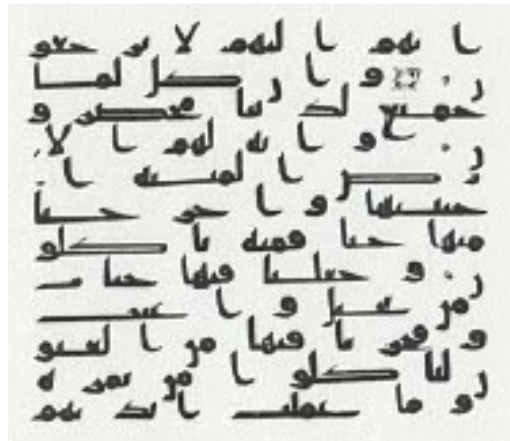 انهم اليهم لا يرجعو
ن وان كل لما
جميع لدينا محضرو
ن وايه لهم الا
رض الميته ا
حيينها واخرجنا
منها حبا فمنه ياكلو
ن وجعلنا فيها جنت
من نخيل واعنب
وفجرنا فيها من العيو
ن لياكلوا من ثمره
وما عملت ايديهم